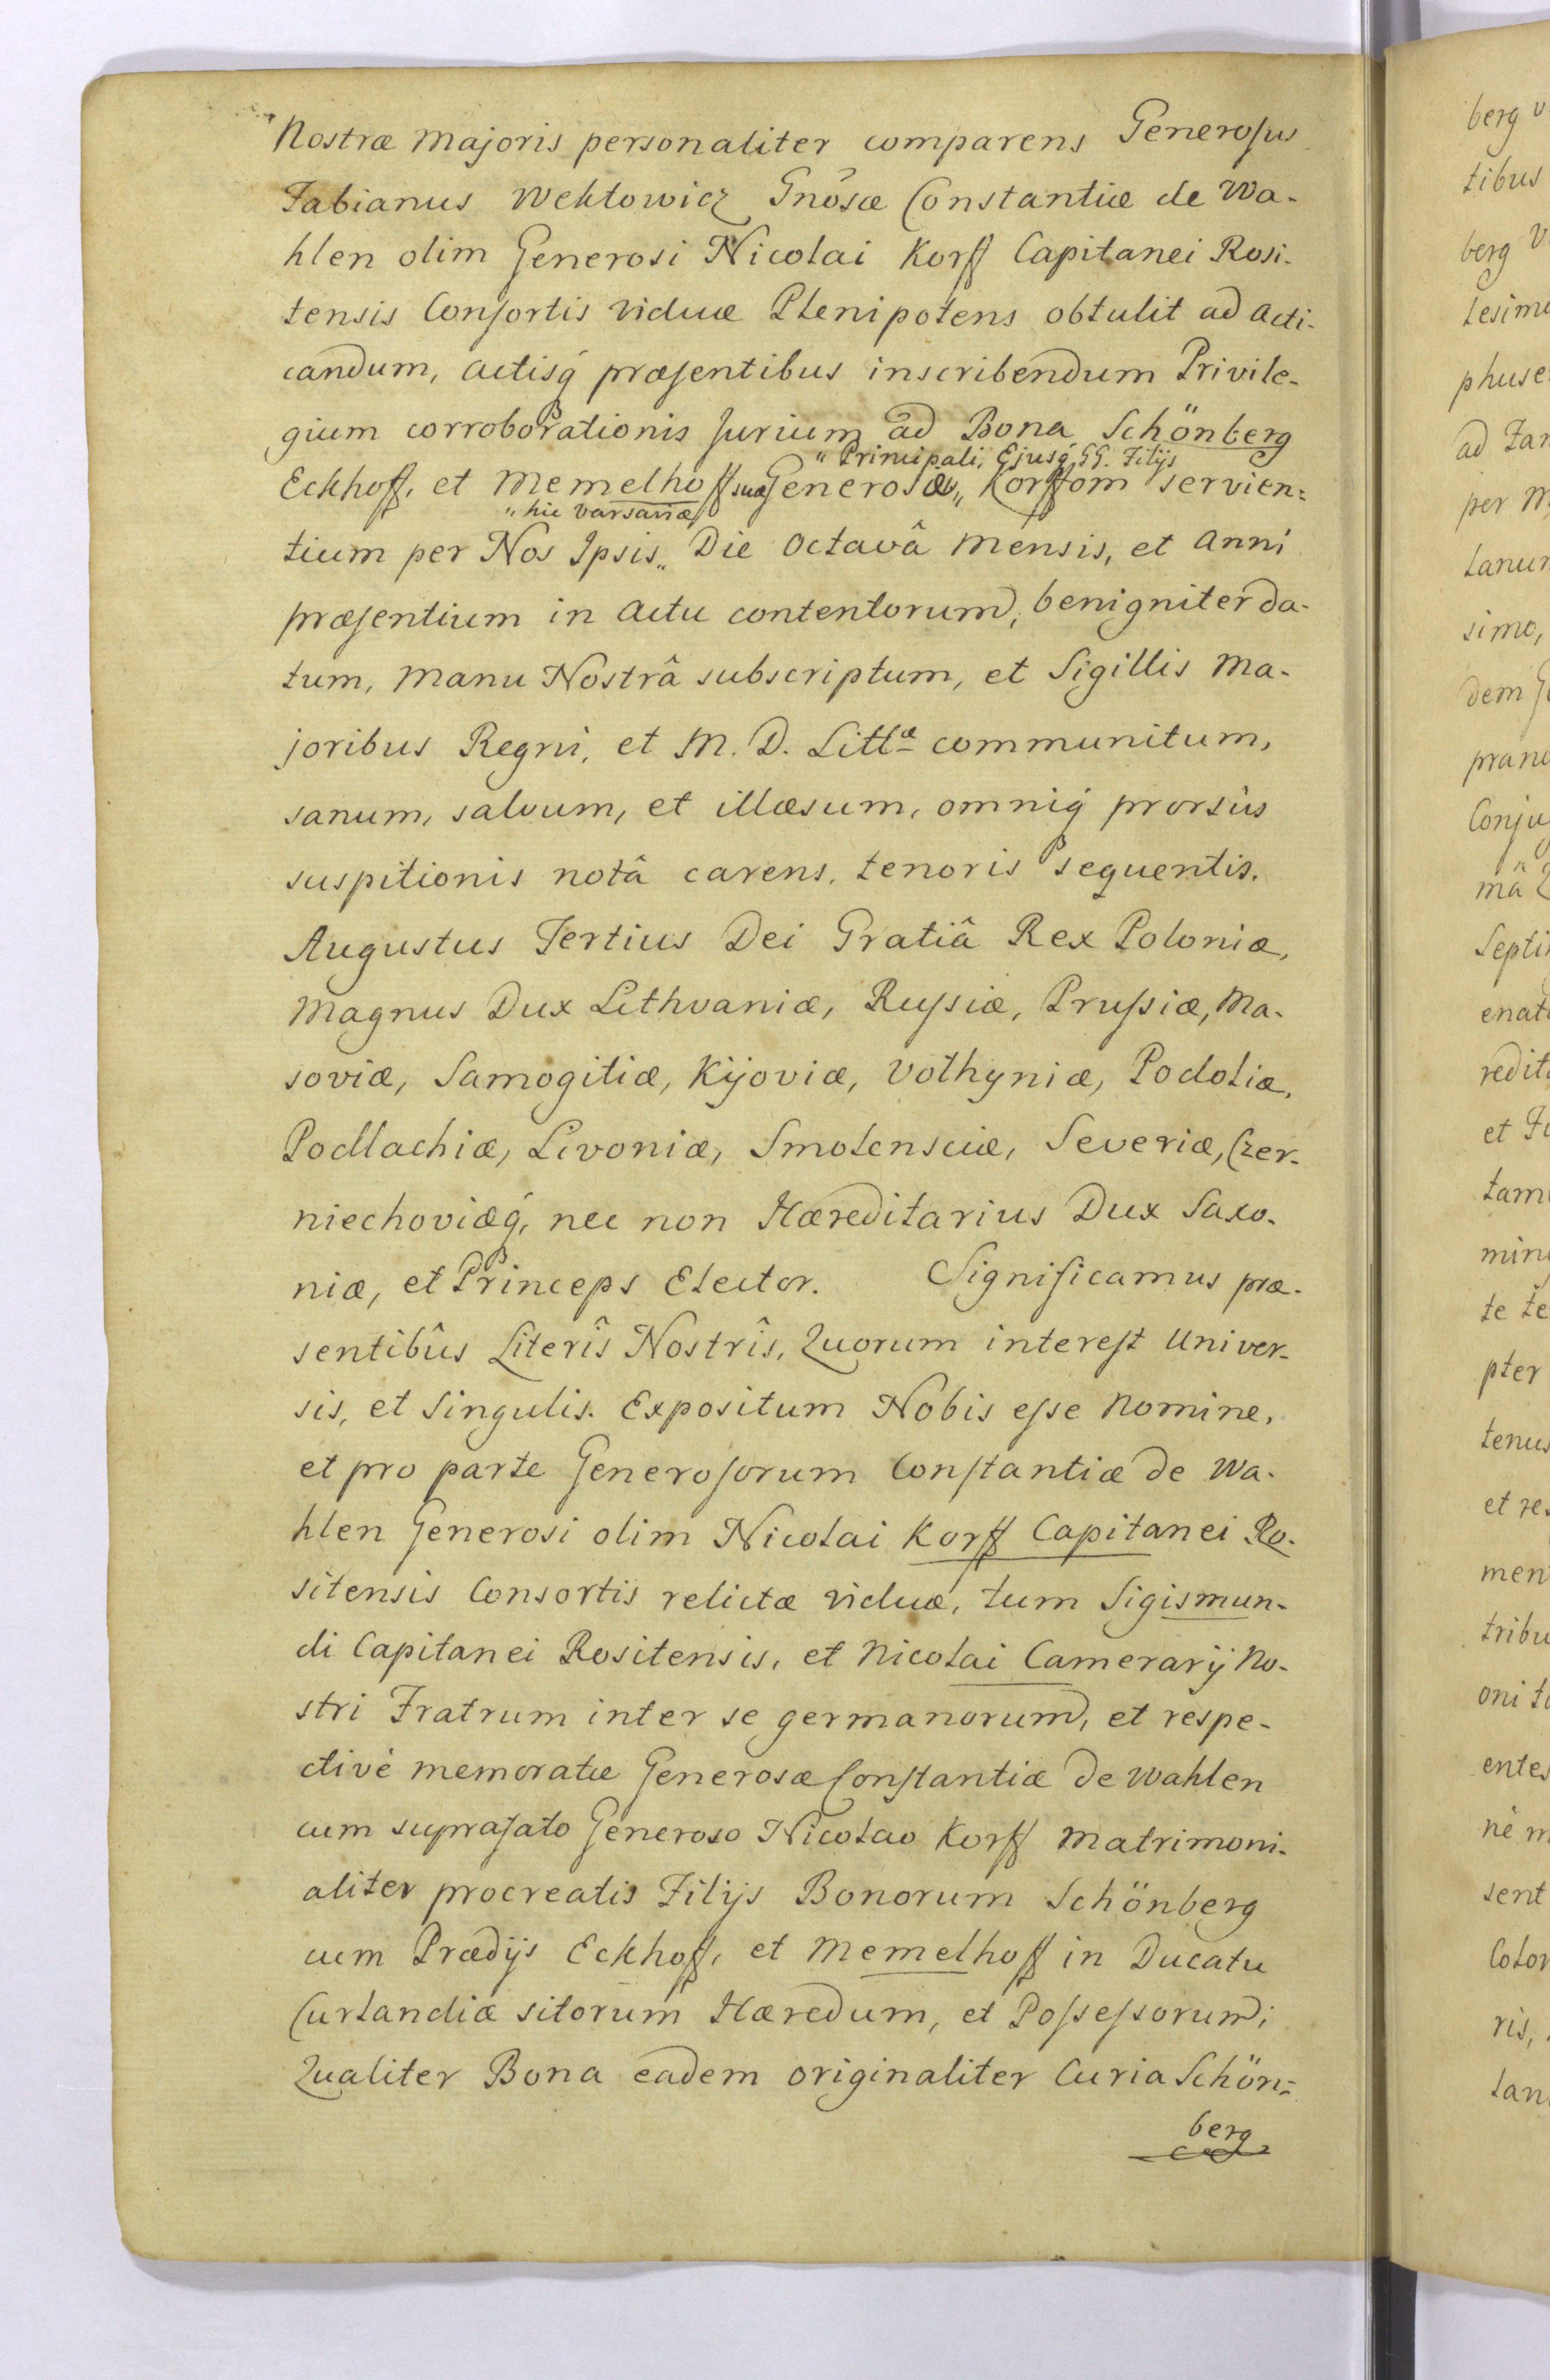 Nostræ Majoris personaliter comparens Generosus
Fabianus Wektowicz Gnõsæ Constantiæ de Wa-
hlen olim Generosi Nicolai Korff Capitanei Rosi-
tensis Consortis viduæ Plenipotens obtulit ad acti-
candum, actisq́ præsentibus inscribendum Privile-
gium corroborationis Jurium ad Bona Schönberg
„ Principali, Ejusq́ GG. Filijs
Eckhoff, et Memelhoff suæ Generosæ „ Korffom servien=
„ hic Varsaviæ
tium per Nos Ipsis „ Die Octavâ Mensis, et Anni
præsentium in Actu contentorum, benigniter da-
tum, Manu Nostrâ subscriptum, et Sigillis Ma-
joribus Regni, et M. D. Littæ communitum,
sanum, salvum, et illæsum, omniq́ prorsùs
suspitionis notâ carens, tenoris sequentis.
Augustus Tertius Dei Gratiâ Rex Poloniæ,
Magnus Dux Lithvaniæ, Russiæ, Prussiæ, Ma-
soviæ, Samogitiæ, Kijoviæ, Volhyniæ, Podoliæ,
Podlachiæ, Livoniæ, Smolensciæ, Severiæ, Czer-
niechoviæq́, nec non Hæreditarius Dux Saxo-
niæ, et Princeps Elector. Significamus præ-
sentibûs Literîs Nostrîs, Quorum interest Univer-
sis, et Singulis. Expositum Nobis esse Nomine,
et pro parte Generosorum Constantiæ de Wa-
hlen Generosi olim Nicolai Korff Capitanei Ro-
sitensis Consortis relictæ viduæ, tum Sigismun-
di Capitanei Rositensis, et Nicolai Camerarij No-
stri Fratrum inter se germanorum, et respe-
ctivè memoratæ Generosæ Constantiæ de Wahlen
cum suprafato Generoso Nicolao Korff Matrimoni-
aliter procreatis Filijs Bonorum Schönberg
cum Prædijs Eckhoff, et Memelhoff in Ducatu
Curlandiæ sitorum Hæredum, et Possessorum;
Qualiter Bona eadem originaliter Curia Schön=
berg
berg
tibus
berg
ad
per
simo,
dem
mâ
et
te
pter
et
men
sent
ris,